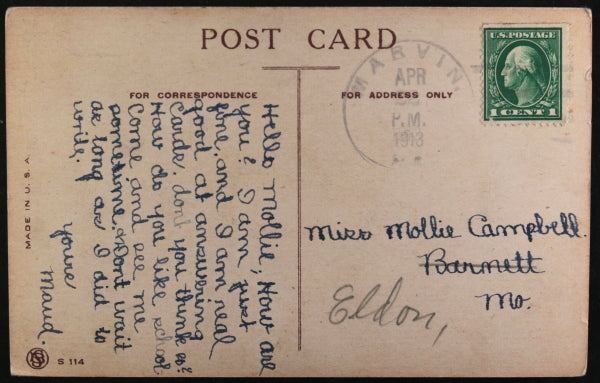 POST CARD
FOR CORRESPONDENCE
FOR ADDRESS ONLY
MARVIN
APR
P.M.
1913
U.S. POSTAGE
1 CENT 1
Hello Mollie; How are
you? I am just
fine, and I am real
good at answering
cards. dont you think so?
How do you like school
Come and see me
sometime. Dont wait
as long as I did to
write.
yours
Maud.
Miss Mollie Campbell.
Barnett
Mo.
Eldon,
MADE IN U.S.A.
S 114